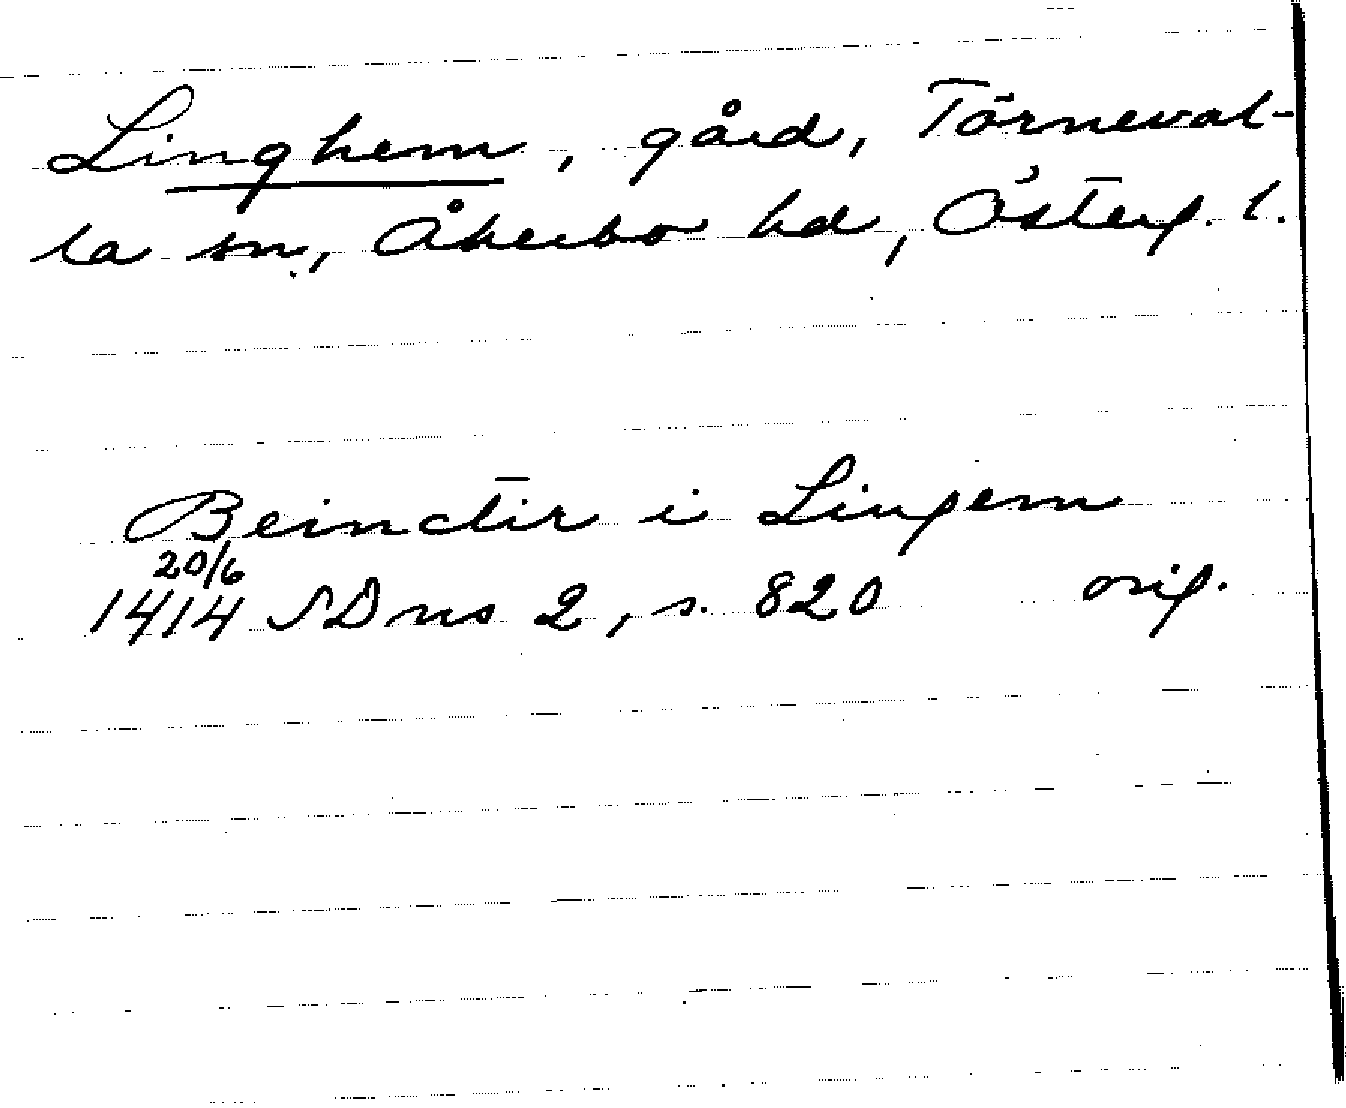 Linghem, gård, Törneval-
la sn, Åkerbo hd, Österg. l.
Beinctir i Lingem
20/6
1414 SDns 2, s. 820 orig.